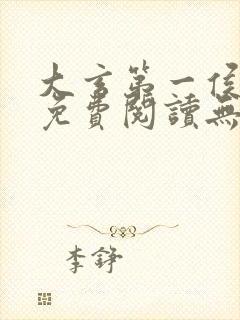 大玄第一侯
免費閱讀無
李錚